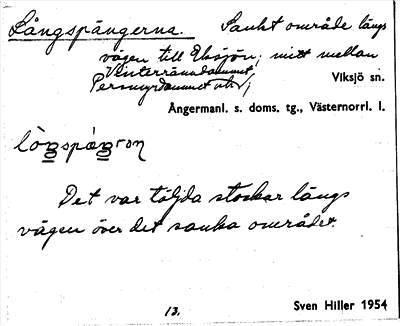 Långspängerna. Sankt område längs
vägen till Eksjön; mitt mellan
Vinterrännedammet
Permyrdammet och;
Viksjö sn.
Ångermanl. s. doms. tg., Västernorrl. l.
Det var töljda stockar längs
vägen över det sanka området.
13.
Sven Hiller 1954